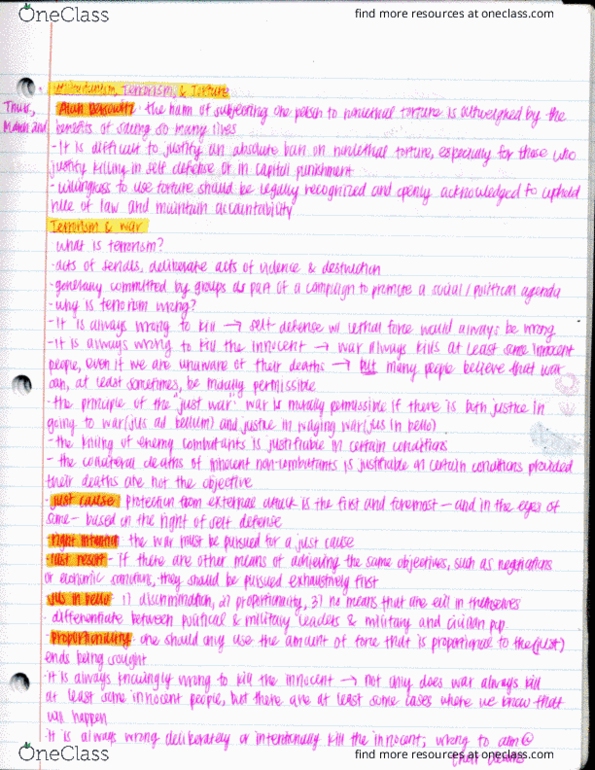 OneClass
find more resources at oneclass.com
Utilitarianism, Terrorism, & Torture
Thurs, Alan Dershowitz - the harm of subjecting one person to nonlethal torture is outweighed by the
March 2nd benefits of saving so many lives
- It is difficult to justify an absolute ban on nonlethal torture, especially for those who
justify killing in self defense or in capital punishment
- willingness to use torture should be legally recognized and openly acknowledged to uphold
rule of law and maintain accountability
Terrorism & war
- what is terrorism?
- acts of deliberate acts of violence & destruction
- generally committed by groups as part of a campaign to promote a social/political agenda
- why is terrorism wrong?
- It is always wrong to kill → self defense w/ lethal force would always be wrong
- It is always wrong to kill the innocent → war always kills at least some innocent
people, even if we are unaware of their deaths → but many people believe that war
can, at least sometimes, be morally permissible
- the principle of the "just war" war is morally permissible if there is both justice in
going to war (jus ad bellum) and justice in waging war (jus in bello)
- the killing of enemy combatants is justifiable in certain conditions
- the collateral deaths of innocent non-combatants is justifiable in certain conditions provided
their deaths are not the objective
- just cause: protection from external attack is the first and foremost - and in the eyes of
some - based on the right of self defense
- right intention the war must be pursued for a just cause
- last resort - If there are other means of achieving the same objectives, such as negotiations
or economic sanctions, they should be pursued exhaustively first
- jus in bello 1) discrimination, 2) proportionality, 3) no means that are evil in themselves
- differentiate between political & military leaders & military and civilian pop.
- proportionality one should only use the amount of force that is proportional to the (just)
ends being sought
- it is always knowingly wrong to kill the innocent → not only does war always kill
at least some innocent people, but there are at least some cases where we know that
will happen
- It is always wrong deliberately or intentionally kill the innocent; wrong to aim @
their deaths
OneClass
find more resources at oneclass.com